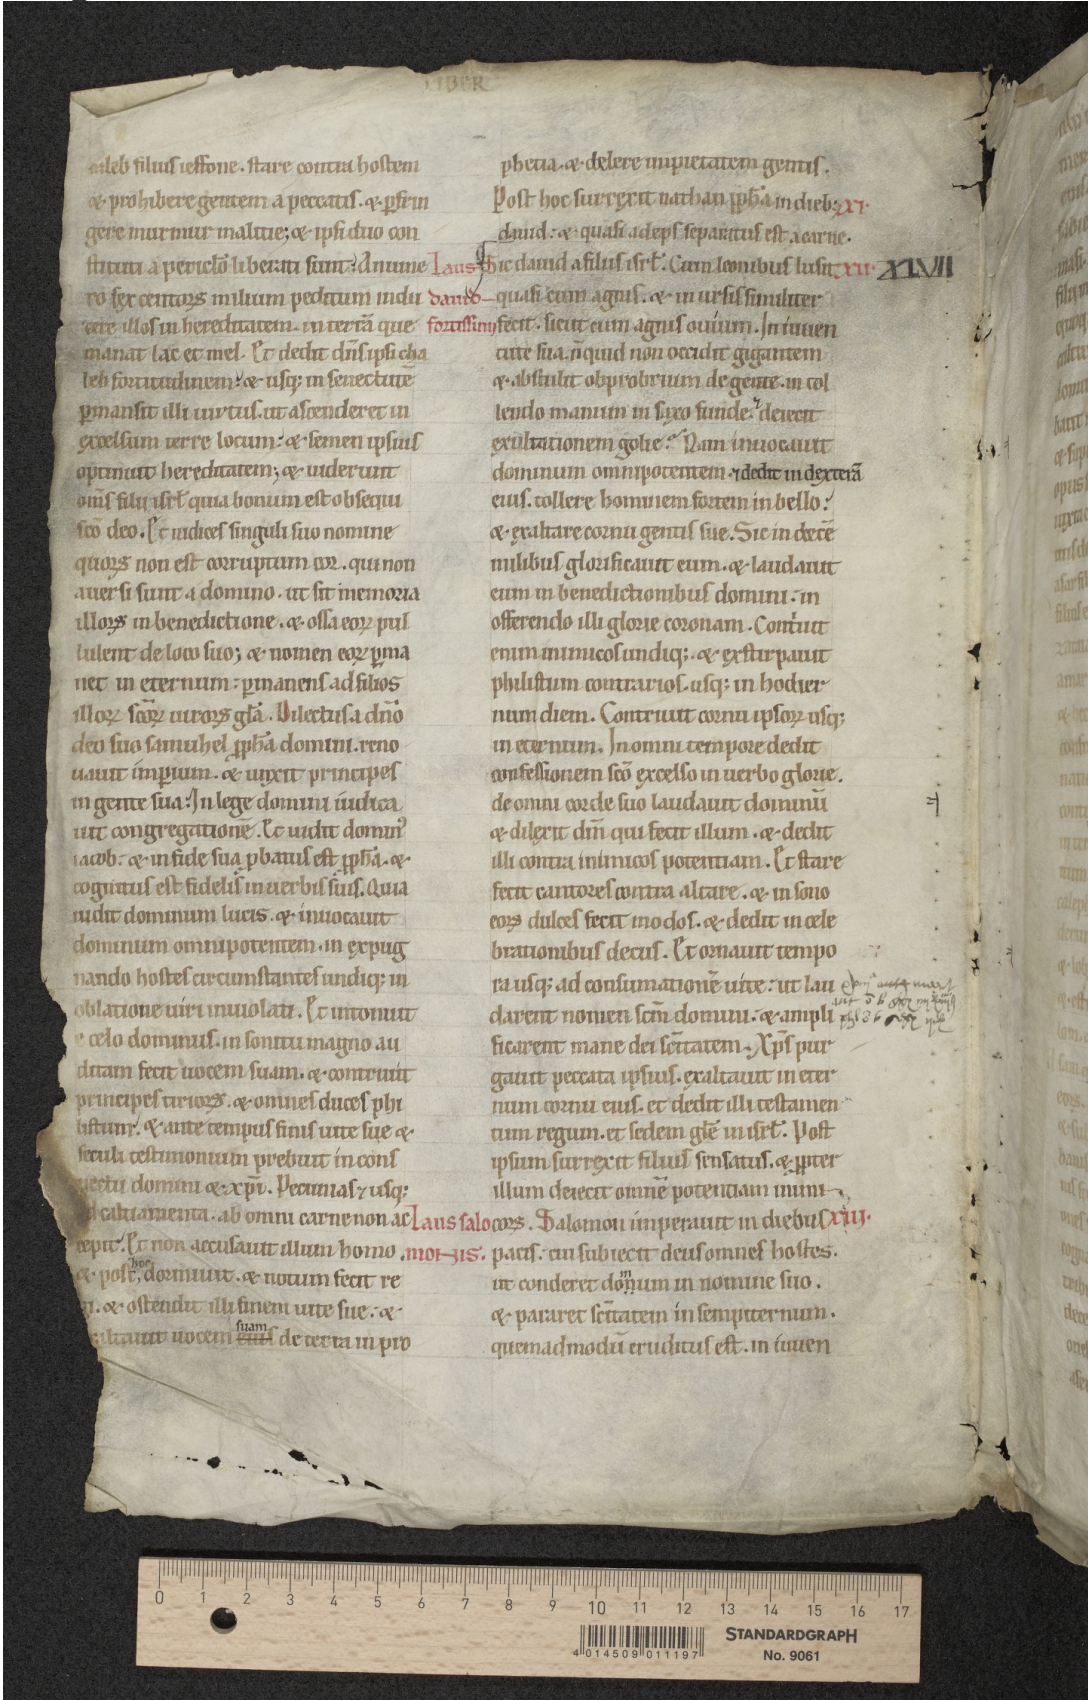 LIBER
caleb filius ieffone. stare contra hostem
⁊ prohibere gentem a peccatis. ⁊ ꝑfrin
gere murmur malitie; ⁊ ipsi duo con
stituti a pericl̄o liberati sunt. A nume
ro sex centoꝝ milium peditum indu
cere illos in hereditatem. in terrā que
manat lac et mel. Et dedit dn̄s ipsi cha
leb fortitudinem. ⁊ usq; in senectutē
ꝑmansit illi uirtus. ut ascenderet in
excelsum terre locum. ⁊ semen ipsius
optinuit hereditatem; ⁊ uiderunt
om̄s filii isrl̄ quia bonum est obsequi
sc̄o deo. Et iudices singuli suo nomine
quoꝝ non est corruptum cor. qui non
auersi sunt a domino. ut sit memoria
illoꝝ in benedictione. ⁊ ossa eoꝝ pul
lulent de loco suo; ⁊ nomen eoꝝ ꝑma
net in eternum. ꝑmanens ad filios
illoꝝ sc̄oꝝ uiroꝝ gl̄a. Dilectus a dn̄o
deo suo samuhel ꝓph̄a domini. reno
uauit imꝑium. ⁊ unxit principes
in gente sua. In lege domini iudica
uit congregationē. Et uidit domin᾿
iacob. ⁊ in fide sua ꝓbatus est ꝓph̄a. ⁊
cognitus est fidelis in uerbis suis. Quia
uidit dominum lucis. ⁊ inuocauit
dominum omnipotentem. in expug
nando hostes circumstantes undiq; in
oblatione uiri inuiolati. Et intonuit
e celo dominus. in sonitu magno au
ditam fecit uocem suam. ⁊ contriuit
principes tirioꝝ. ⁊ omnes duces phi
listiim. ⁊ ante tempus finis uite sue ⁊
seculi testimonium prebuit in cons
pectu domini ⁊ xp̄i. Pecunias ⁊ usq;
ad calciamenta. ab omni carne non ac
cepit. Et non accusauit illum homo.
⁊ post hoc dormiuit. ⁊ notum fecit re
gi. ⁊ ostendit illi finem uite sue. ⁊
exaltauit uocem eius suam de terra in pro
phetia. ⁊ delere impietatem gentis.
Post hoc surrexit nathan ꝓph̄a in dieb; XI.
dauid. ⁊ quasi adeps separatus est a carne.
Laus dauid fortissimi
Sic dauid a filiis isrl̄. Cum leonibus lusit XII. XLVII
quasi cum agnis. ⁊ in ursis similiter
fecit. sicut cum agnis ouium. In iuuen
tute sua. nūquid non occidit gigantem
⁊ abstulit obprobrium de gente. in tol
lendo manum in saxo funde. deiecit
exultationem golie. Nam inuocauit
dominum omnipotentem. ⁊ dedit in dexterā
eius. tollere hominem fortem in bello.
⁊ exaltare cornu gentis sue. Sic in decē
milibus glorificauit eum. ⁊ laudauit
eum in benedictionibus domini. in
offerendo illi glorie coronam. Cont'uit
enim inimicos undiq;. ⁊ exstirpauit
philistiim contrarios. usq; in hodier
num diem. Contriuit cornu ipsoꝝ usq;
in eternum. In omni tempore dedit
confessionem sc̄o excelso in uerbo glorie.
de omni corde suo laudauit dominū
⁊ dilexit dm̄ qui fecit illum. ⁊ dedit
illi contra inimicos potentiam. Et stare
fecit cantores contra altare. ⁊ in sono
eoꝝ dulces fecit modos. ⁊ dedit in cele
brationibus decus. Et ornauit tempo
ra usq; ad consumationē uite. ut lau
darent nomen sc̄m domini. ⁊ ampli
ficarent mane dei sc̄itatem. Xp̄s pur
gauit peccata ipsius. exaltauit in eter
num cornu eius. et dedit illi testamen
tum regum. et sedem gl̄e in isrl̄. Post
ipsum surrexit filius sensatus. ⁊ ꝓpter
illum deiecit omnē potentiam inimi
coꝝ. Salomon imperauit in diebus XIII.
Laus salomonis.
pacis. cui subiecit deus omnes hostes.
ut conderet domum in nomine suo.
⁊ pararet sc̄itatem in sempiternum.
quemadmodū eruditus est. in iuuen
0 1 2 3 4 5 6 7 8 9 10 11 12 13 14 15 16 17
4 014509 011197
STANDARDGRAPH
No. 9061